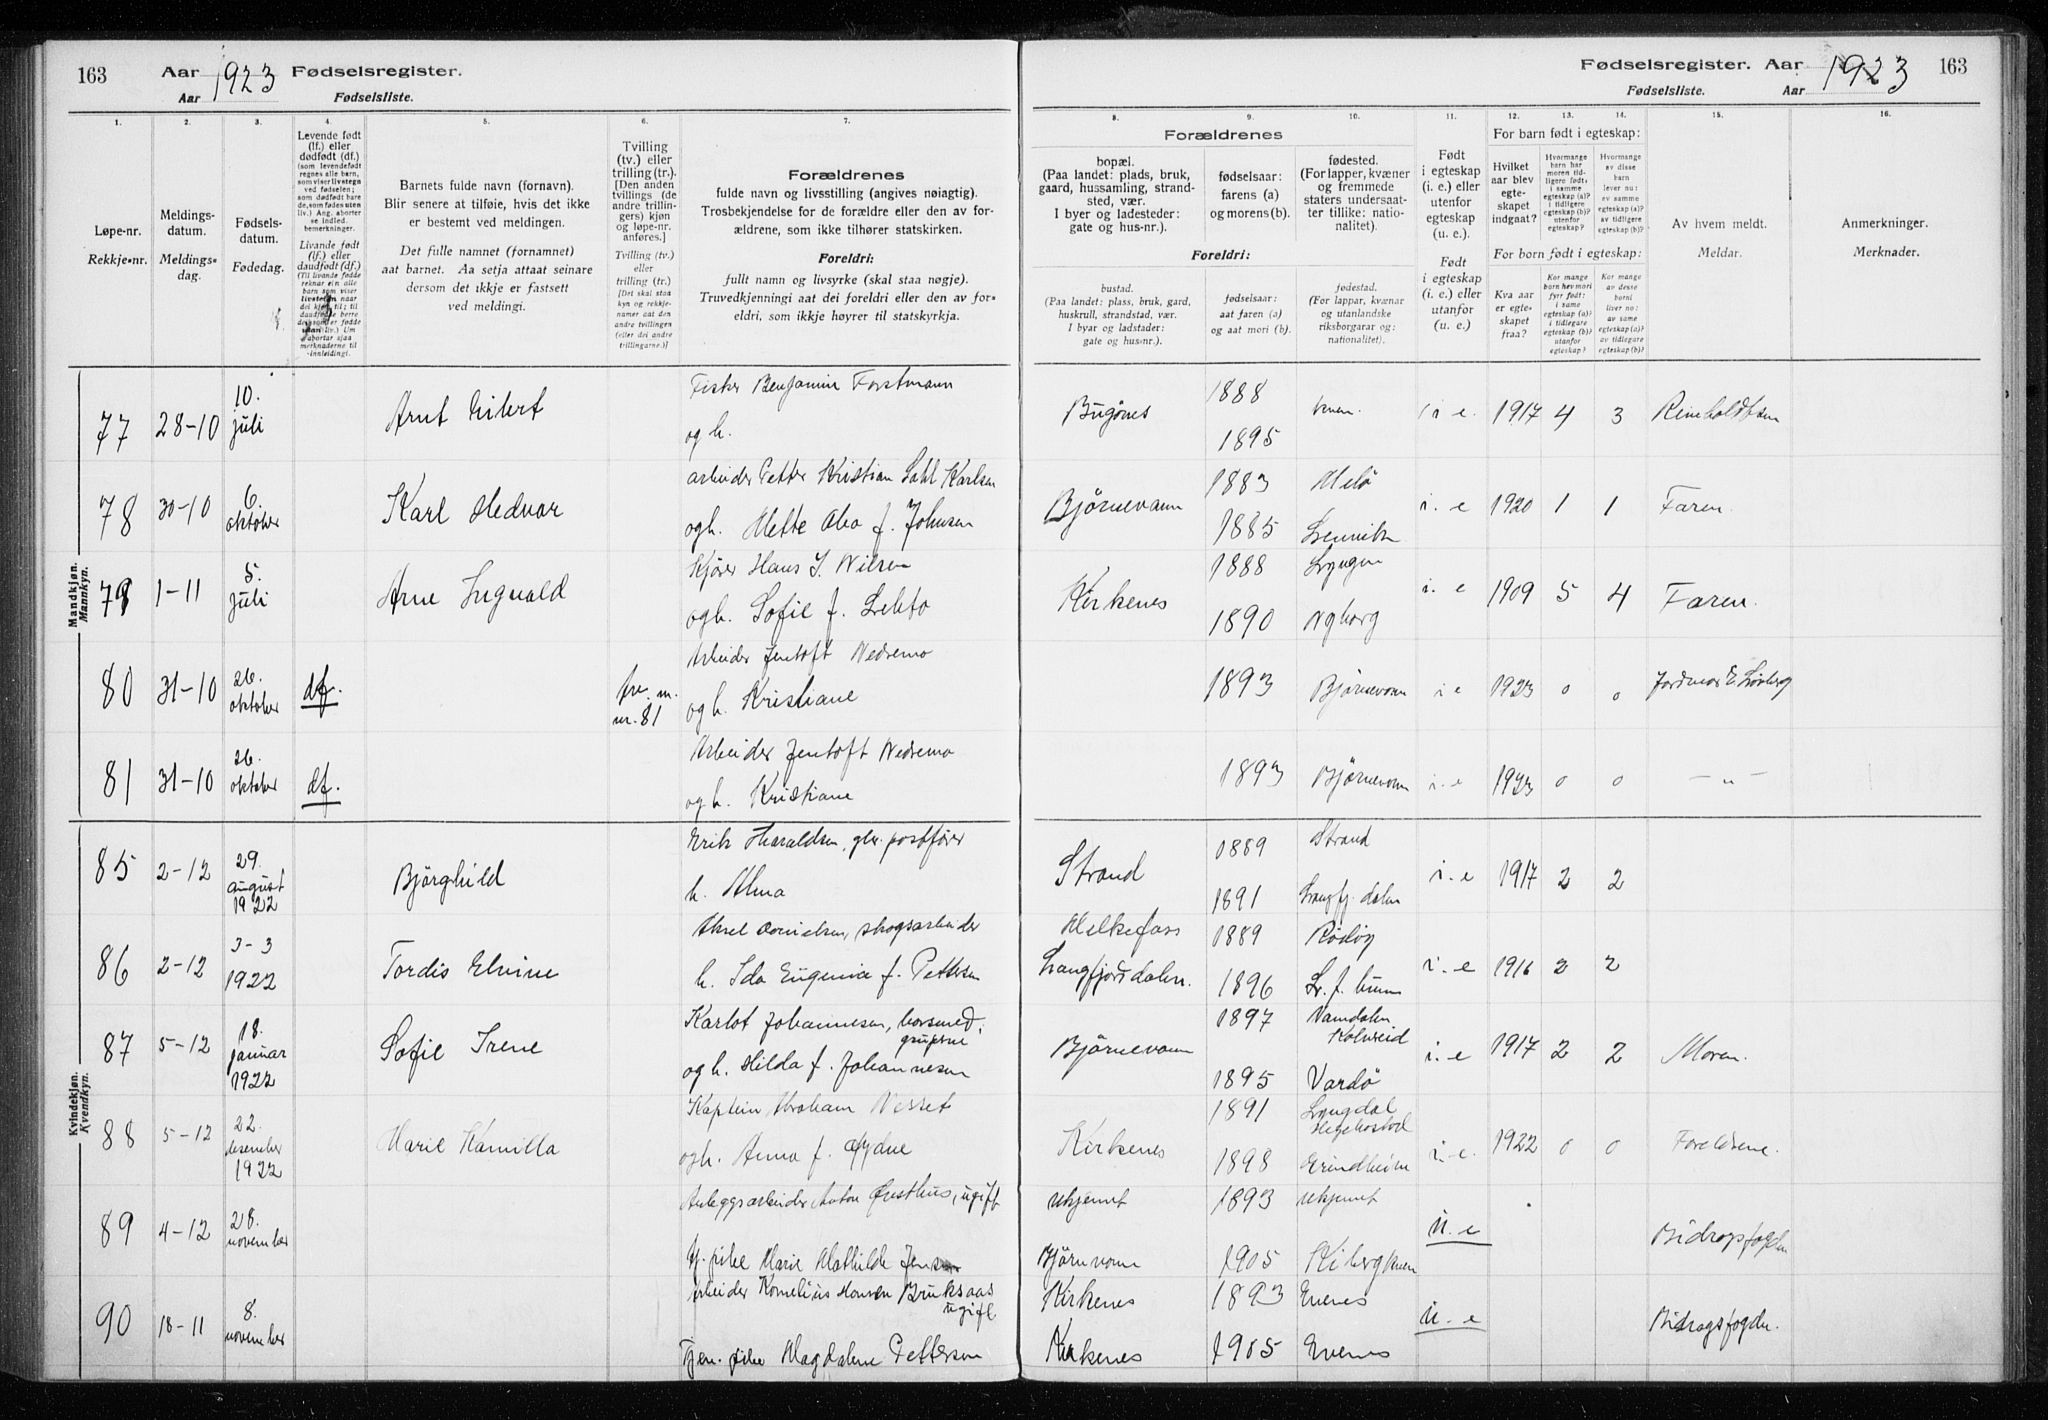 163 Aar 1923 Fødselsregister.
Aar Fødselsliste.
Fødselsregister. Aar 1923 163
Fødselsliste. Aar
1. 2. 3. 4. 5. 6. 7.
Løpe-nr.
Rekkje-nr.
Meldings-
datum.
Meldings-
dag.
Fødsels-
datum.
Fødedag.
Levende født
(lf.) eller
dødfødt (df.)
(som levendefødt
regnes alle barn,
som viser livstegn
ved fødselen;
som dødfødt bare
de, som fødes uten
liv.) Ang. aborter
se indled.
bemerkninger.
Livande født
(lf.) eller
daudfødt (df.)
Barnets fulde navn (fornavn).
Blir senere at tilføie, hvis det ikke
er bestemt ved meldingen.
Det fulle namnet (fornamnet)
aat barnet. Aa setja attaat seinare
dersom det ikkje er fastsett
ved meldingi.
Tvilling
(tv.) eller
trilling (tr.).
[Den anden
tvillings (de
andre trillin-
gers) kjøn
og løpe-nr.
anføres.]
Tvilling (tv.)
eller
trilling (tr.).
[Det skal staa
kyn og rekkje-
numer aat den
andre tvillingen
(eller dei andre
trillingarne.)]
Forældrenes
fulde navn og livsstilling (angives nøiagtig).
Trosbekjendelse for de forældre eller den av for-
ældrene, som ikke tilhører statskirken.
Foreldri:
fullt namn og livsyrke (skal staa nøgje).
Truvedkjenningi aat dei foreldri eller den av for-
eldri, som ikkje høyrer til statskyrkja.
8. 9. 10. 11. 12. 13. 14. 15. 16.
Forældrenes
bopæl.
(Paa landet: plads, bruk,
gaard, hussamling, strand-
sted, vær.
I byer og ladesteder:
gate og hus-nr.).
fødselsaar:
farens (a)
og morens (b).
fødested.
(For lapper, kvæner
og fremmede
staters undersaat-
ter tillike: natio-
nalitet).
Foreldri:
bustad.
(Paa landet: plass, bruk, gard,
huskrull, strandstad, vær.
I byar og ladstader:
gate og hus-nr.).
fødselsaar:
aat faren (a)
og aat mori (b).
fødestad.
(For lappar, kvænar
og utanlandske
riksborgarar og:
nationalitet).
Født
i egteskap
(i. e.) eller
utenfor
egteskap
(u. e.).
Født
i egteskap
(i. e.) eller
utanfor
(u. e.)
For barn født i egteskap:
Hvilket
aar blev
egte-
skapet
indgaat?
Hvormange
barn har
moren tid-
ligere født:
i samme
egteskap (a)?
i tidligere
egteskap (b)?
utenfor
egteskap?
Hvormange
av disse
barn
lever nu:
av samme
egteskap (a)?
av tidligere
egteskap (b)?
For born født i egteskap:
Kva aar
er egte-
skapet
fraa?
Kor mange
born hev mori
fyrr født:
i same
egteskap (a)?
i tidlegare
egteskap (b)?
utanfor
egteskap?
Kor mange
av desse
borni
liver nu:
av same
egteskap (a)?
av tidlegare
egteskap (b)?
Av hvem meldt.
Meldar.
Anmerkninger.
Merknader.
Mandkjøn.
Mannkyn.
77 28-10 10. juli Arnt Eilert Fisker Benjamin Forstmann
og h. Bugønes 1888 1895 kven. i. e. 1917 4 3
78 30-10 6. oktober Karl Hedvar arbeider Petter Kristian Karlsen
og h. Mette f. Johnsen Bjørnevann 1883 Melö 1885 Lenvik i. e 1920 1 1 Faren.
79 1-11 5. juli Arne Ingvald Kjører Hans J. Nilsen
og h. Sofie f. Kirkenes 1888 Lyngen 1890 Nyborg i. e 1909 5 4 Faren.
80 31-10 26. oktober df. nr. 81 Arbeider Jentoft Nedremo
og h. Kristiane 1893 Bjørnevann i e 1923 0 0 Jordmor E. Løvberg
81 31-10 26. oktober df. Arbeider Jentoft Nedremo
og h. Kristiane 1893 Bjørnevann i. e 1923 0 0 — „ —
Kvindekjøn.
Kvendkyn.
85 2-12 29. august 1922 Bjørghild Erik Haraldsen, postfører
h. Alma Strand 1889 Strand 1891 Langfj. dalen i. e 1917 2 2
86 2-12 3-3 1922 Tordis Elvine Aksel Cornelsen, skogsarbeider
h. Ida Eugenie f. Pettersen Melkefoss Langfjordalen. 1889 Rødøy 1896 i. e 1916 2 2
87 5-12 18. januar 1922 Sofie Irene Karlot Johannesen,
og h. Hilda f. Johannesen Bjørnevann 1897 Vamdalen Kolvereid 1895 Vardö i. e 1917 2 2 Moren.
88 5-12 22. desember 1922 Marie Kamilla Kaptein Abraham Nesset
og h. Anna f. Kirkenes 1891 Lyngdal Hegebostad 1898 Grindheim i. e. 1922 0 0 Foreldrene.
89 4-12 28. november Anleggsarbeider Anton Ørsthus, ugift
tj. pike Marie Mathilde Jensen ukjennt 1893 ukjennt Bjørnevann 1905 Kiberg u. e Bidragsfogden
90 18-11 8. november Arbeider Kornelius Hansen Bruksaas
ugift
Tjen. pike Magdalene Pettersen Kirkenes 1893 Evenes Kirkenes 1905 Evenes u. e Bidragsfogden.